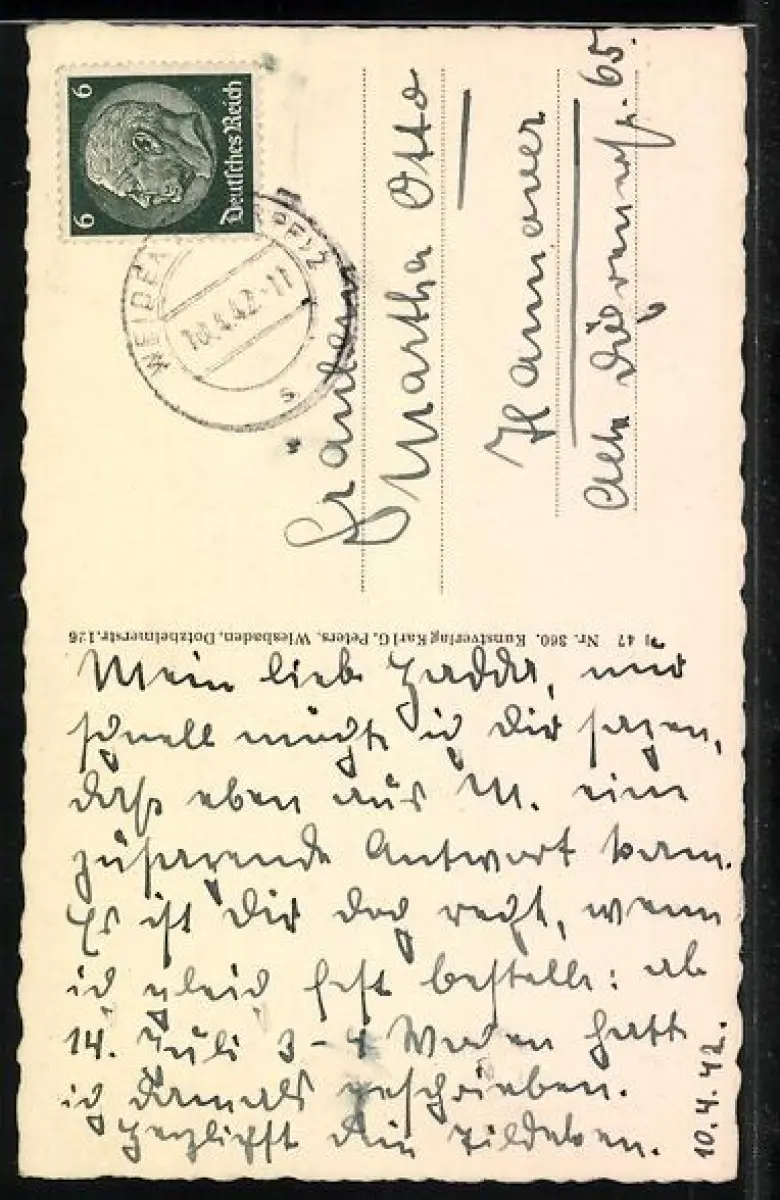 6 6
Deutsches Reich
WEIDEN
10.4.42.-11
s
Fräulein
Martha Otto
Hannover
65.
47 Nr. 360. Kunstverlag Karl G. Peters, Wiesbaden, Dotzheimerstr. 126
Mein lieb, nur
schnell möcht ich Dir sagen,
daß eben aus M. eine
zusagende Antwort kam.
Es ist Dir doch recht, wenn
ich gleich fest bestelle: ab
14. Juli 3-4 Wochen hatte
ich damals geschrieben.
Herzlichst Dein
10.4.42.